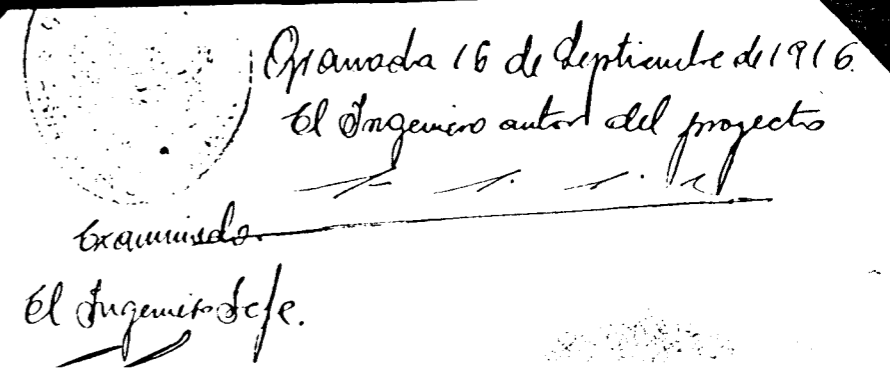 Granada 16 de Septiembre de 1916.
El Ingeniero autor del proyecto
Examinado.
El Ingeniero Jefe.